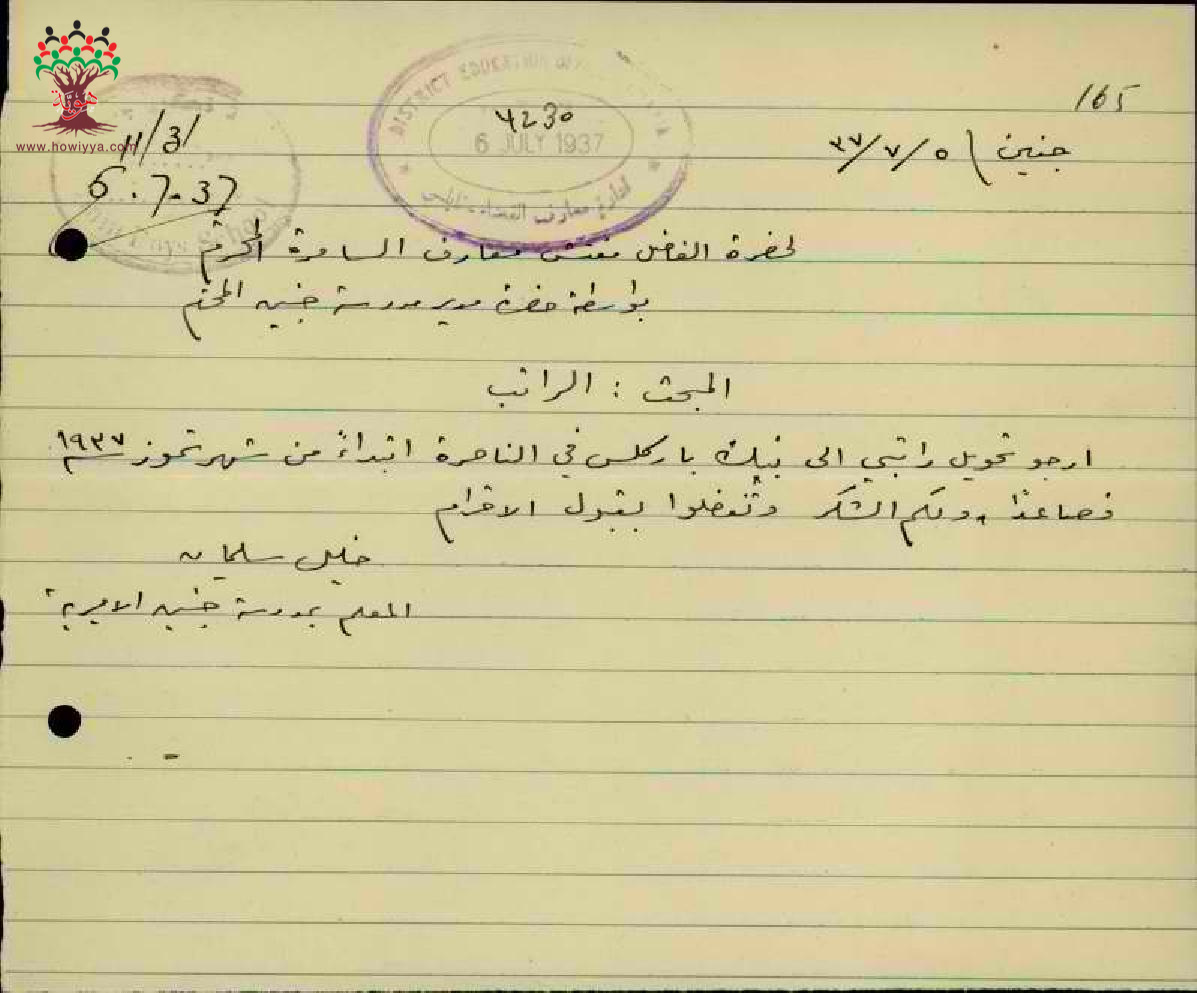 165
جنين / ٥/٧/٣٧
11/31
5.7.37
DISTRICT EDUCATION
4230
6 JULY 1937
ادارة معارف القضاء نابلس
Boys School
هوية
www.howiyya.com
لحضرة الفاضل مفتش معارف السامرة المحترم
بواسطة حضرة مدير مدرسة جنين المحترم
المبحث : الراتب
ارجو تحويل راتبي الى بنك باركلس في الناصرة ابتداءً من شهر تموز سنة ١٩٣٧
فصاعدًا ، ولكم الشكر وتفضلوا بقبول الاحترام
خليل سلمان
المعلم بمدرسة جنين الاميرية